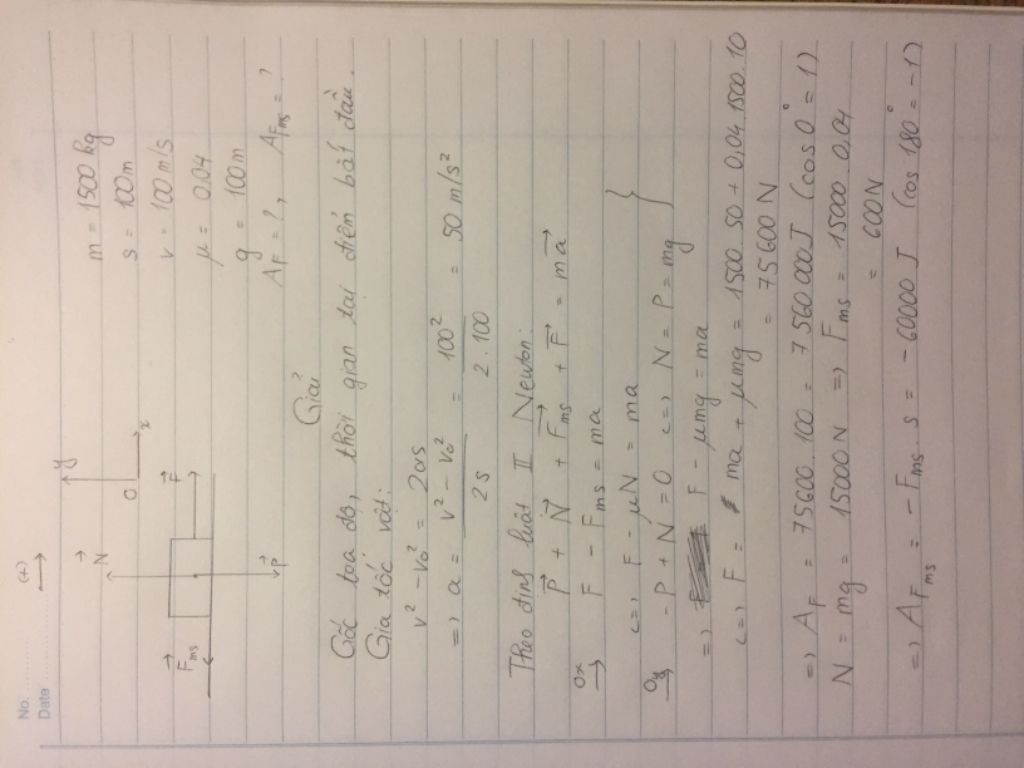 No. ..........
Date ..........
(+)
→
N→
y
F→ms
F→
O
x
P→
m = 1500 kg
s = 100m
v = 100 m/s
μ = 0,04
g = 100m
A_F = ?, A_Fms = ?
Giải
Gốc tọa độ, thời gian tại điểm bắt đầu.
Gia tốc vật:
v² - v₀² = 2as
=) a = (v² - v₀²)/(2s) = 100²/(2.100) = 50 m/s²
Theo định luật II Newton:
P→ + N→ + F→ms + F→ = ma→
Ox→ F - Fms = ma
<=> F - μN = ma
Oy→ - P + N = 0 <=> N = P = mg }
=) F - μmg = ma
<=> F = ma + μmg = 1500.50 + 0,04.1500.10
= 75600 N
=) A_F = 75600.100 = 7560.000J (cos 0° = 1)
N = mg = 15000N =) Fms = 15000.0,04
= 600N
=) A_Fms = - Fms.s = - 60000 J (cos 180° = -1)